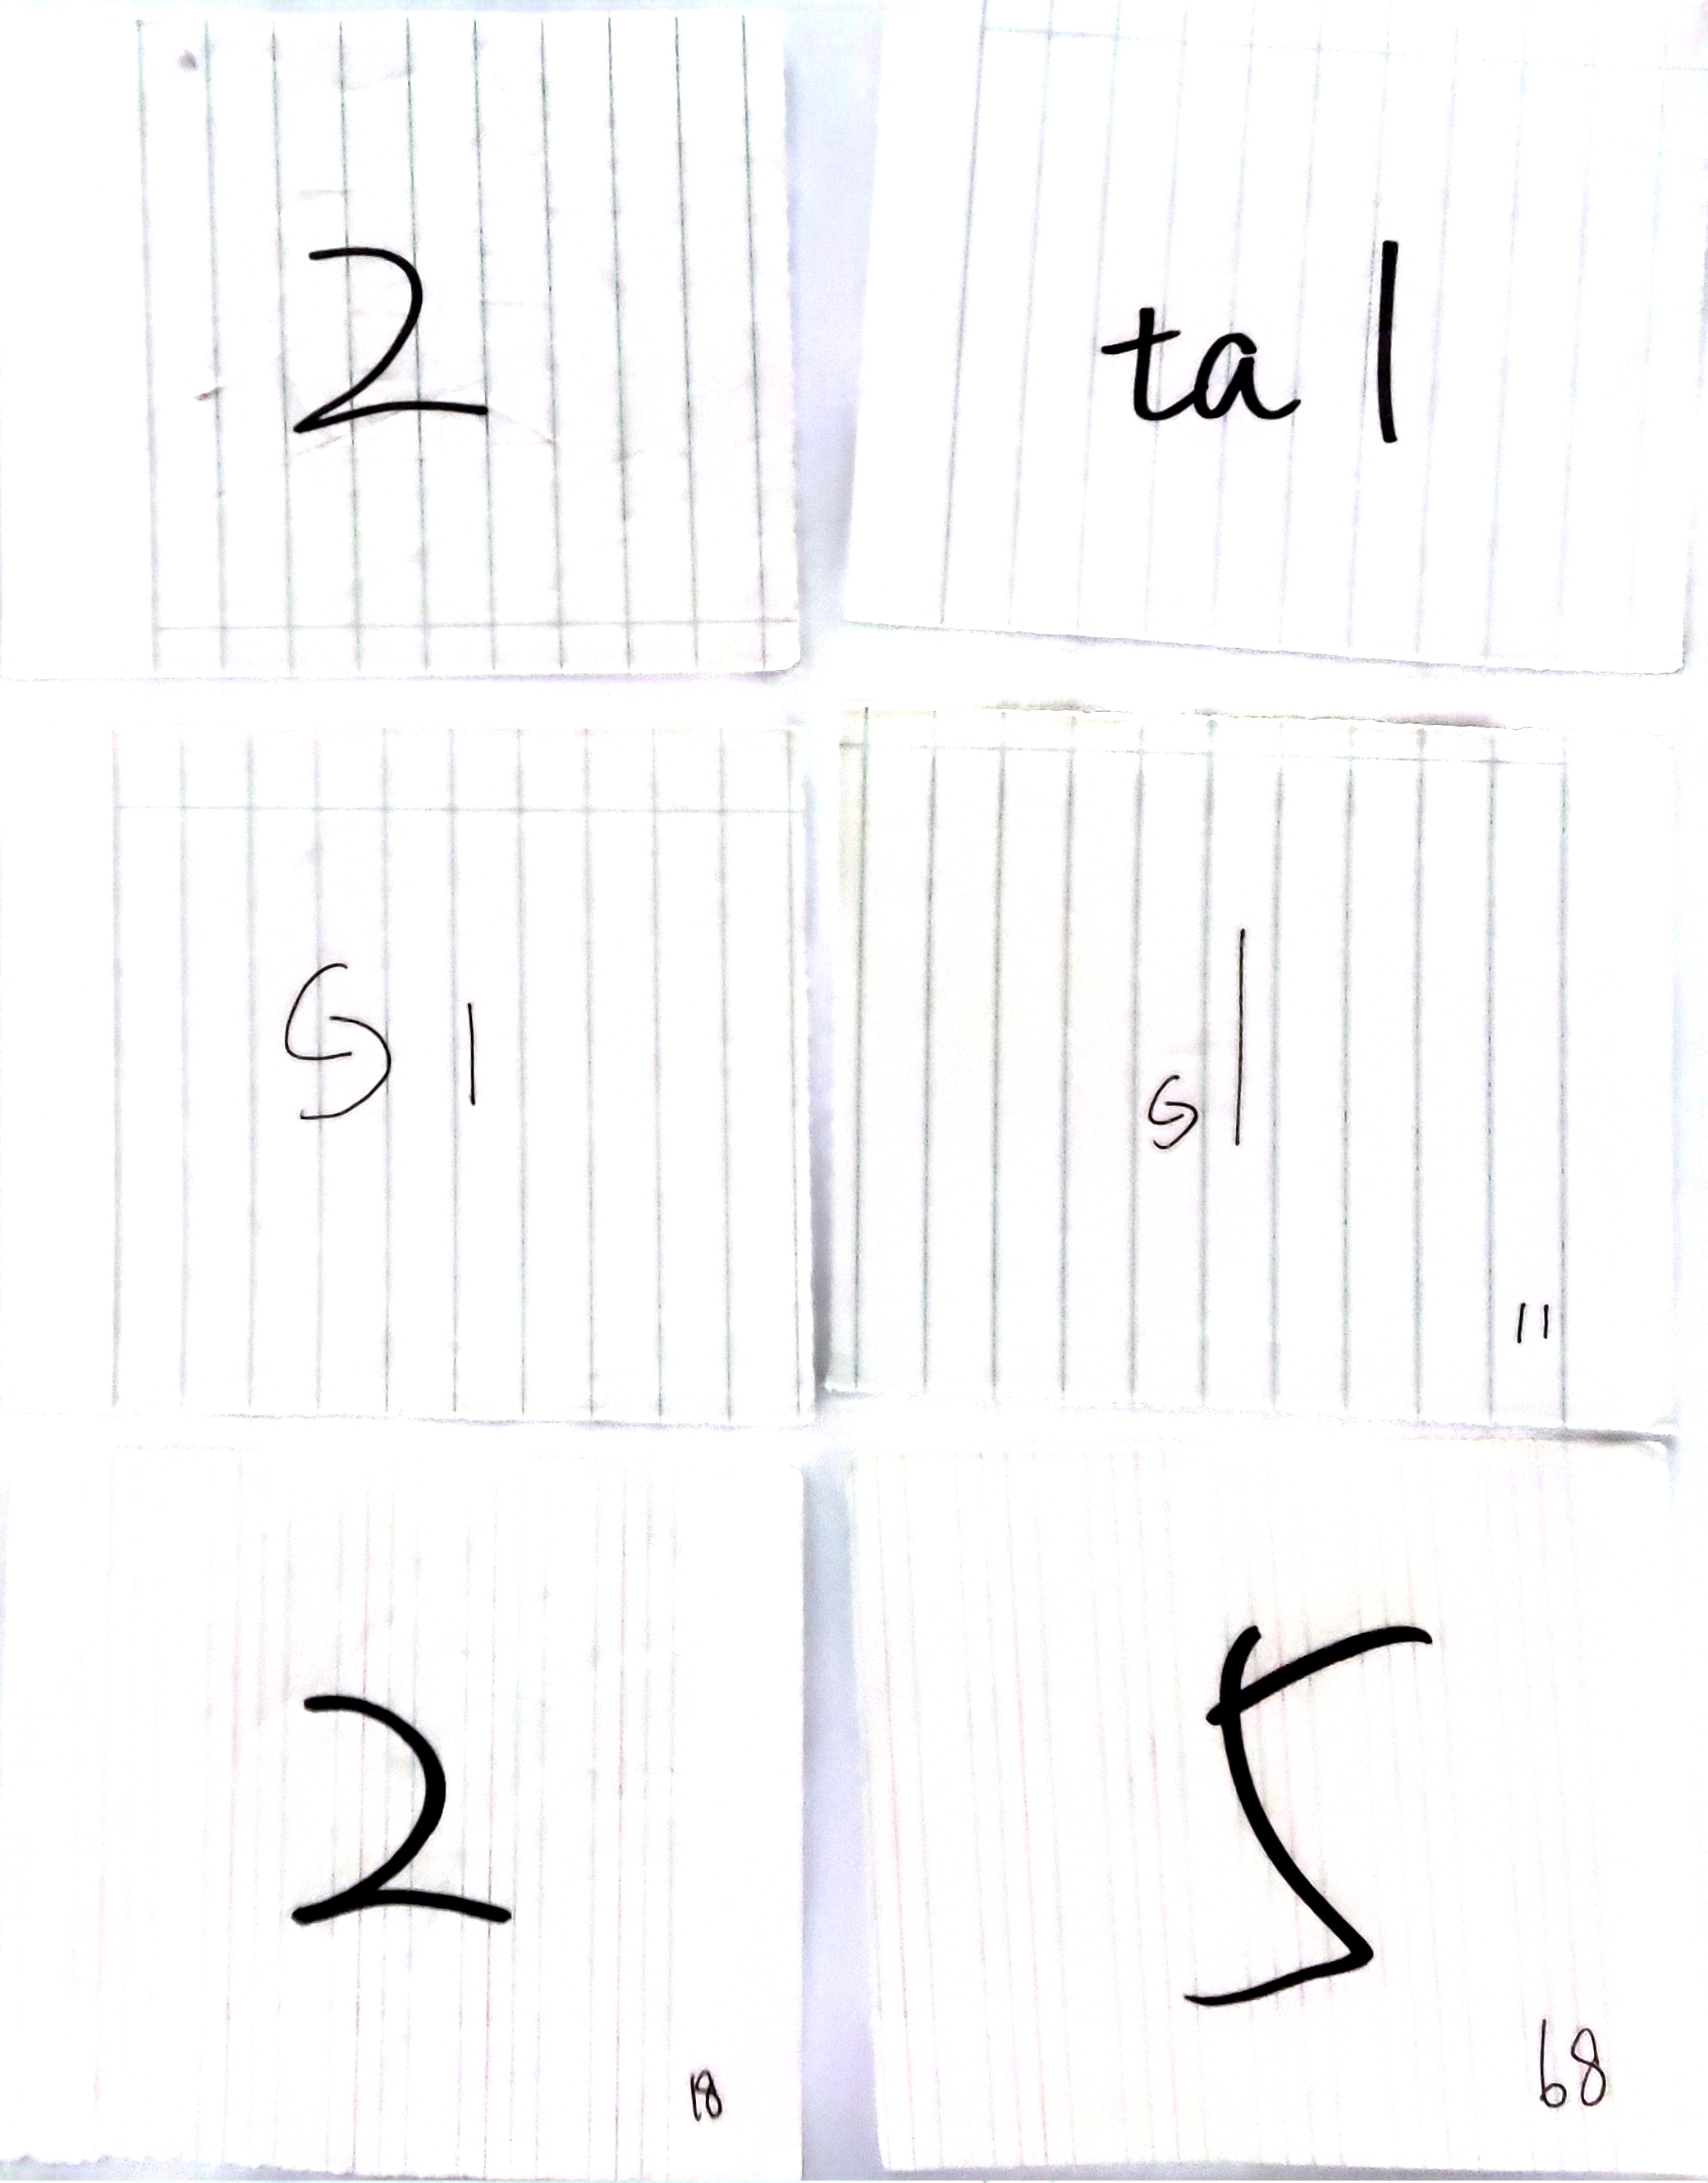 2
ta l
S l
s l
11
2
18
5
68